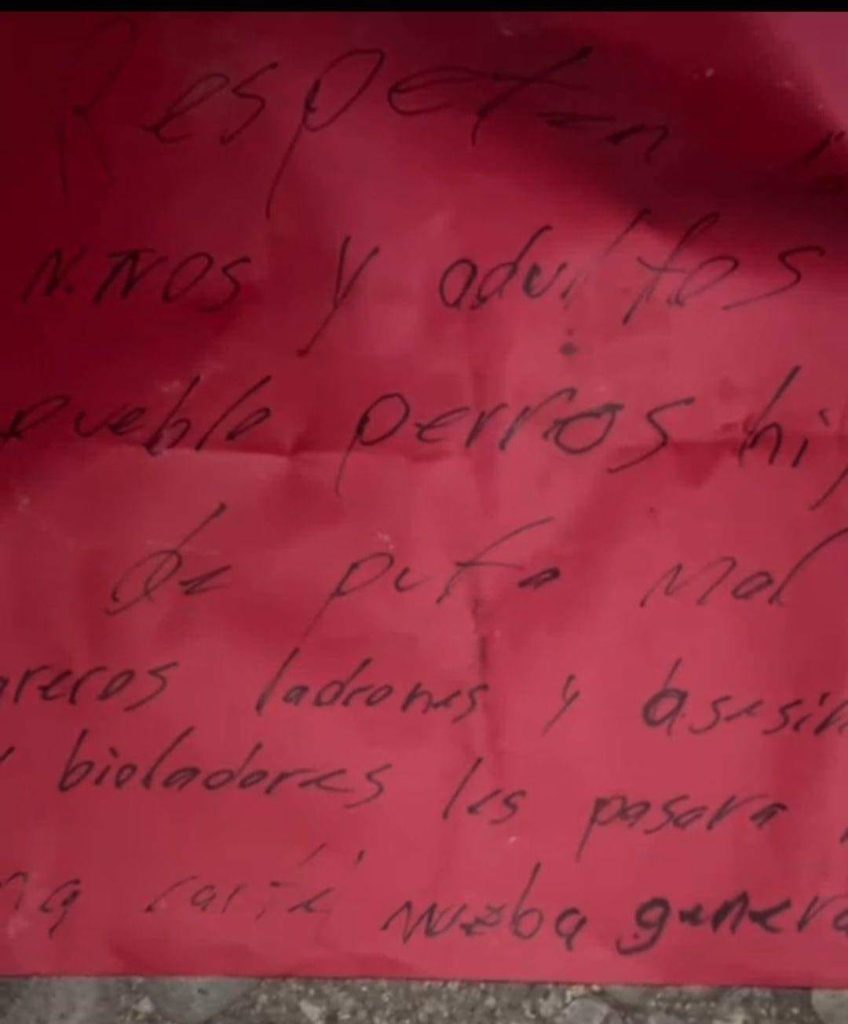 Respeten
niños y adultos
pueblo perros hij
de puta mal
areros ladrones y asesin
y bioladores les pasara
nueba genera